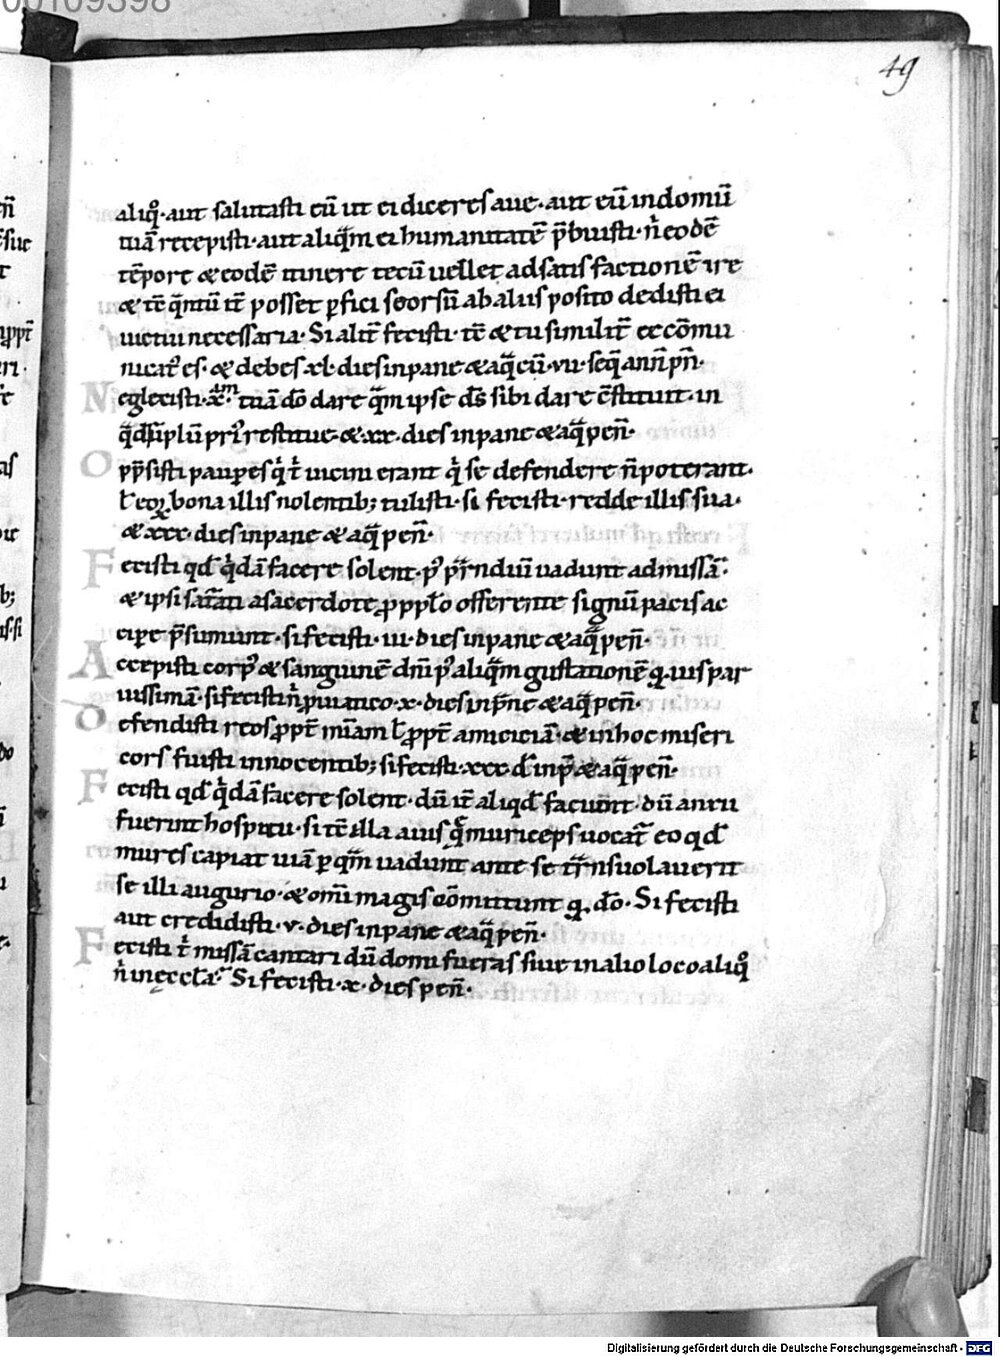 00109398
49
aliq̊·aut salutasti eū ut ei diceres aue·aut eū in domū
tuā recepisti·aut aliq̄m ei humanitatē p̄buisti·n̍ eodē
tēpore & eodē itinere tecū uellet ad satisfactionē ire
& tē q̄ntū it̄ posset ꝑfici seorsū ab aliis posito dedisti ei
uictui necessaria·Si alit̄ fecisti·tē & tu similit̄ excōmu
nicat᷒ es·& debes xl·dies in pane & aq̄ cū·vii·seq̄ annī pn̄·
Neglexisti·x·am̄ tuā dō dare q̄m ipse ds̄ sibi dare c̄stituit·in
q̄dsiplū pri᷒ restitue·&·xx·dies in pane & aq̄ pen̄·
Opp̄sisti pauꝑes q̍ t̍ uicini erant q̍ se defendere n̄ poterant·
ł eoꝝ bona illis nolentib; tulisti·si fecisti·redde illis sua·
& xxx·dies in pane & aq̄ pen̄·
Fecisti qđ q̍dā facere solent·p᷒ pr̄ndiū uadunt ad missā·
& ipsi satiati a sacerdote ꝓ ppło offerente signū pacis ac
ciꝑe p̄sumunt·si fecisti·iii·dies in pane & aq̄ pen̄·
Accepisti corp᷒ & sanguinē dm̄i p᷒ aliq̄m gustationē q·uis par
uissimā·si fecisti n̍ ꝓ uiatico·x·dies in pāne & aq̄ pen̄·
Defendisti reos ꝓpt̄ mīam ł ꝓpt̄ amiciciā·& in hoc miseri
cors fuisti innocentib; si fecisti·xxx đ in p̄ & aq̄ pen̄·
Fecisti qđ q̍dā facere solent·dū it̄ aliqđ faciunt·dū an rii
fuerint hospitii·si tē illa auis q̄ muriceps uocat̄ eo qđ
mures capiat uiā ꝑ q̄m uadunt ante se tr̄nsuolauerit
se illi augurio·& om̄i magis cōmittunt q·dō·Si fecisti
aut credidisti·v·dies in pane & aq̄ pen̄·
Fecisti t̍ missā cantari dū domi fueras siue in alio loco aliq̊
n̍ in ęccła·Si fecisti·x·dies pen̄·
Digitalisierung gefördert durch die Deutsche Forschungsgemeinschaft - DFG